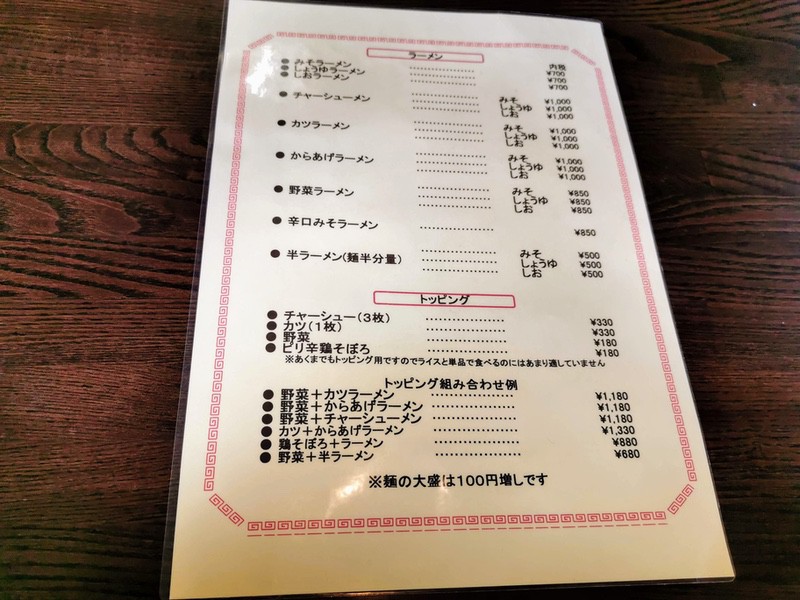 ラーメン
内税
●みそラーメン ……………… ¥700
●しょうゆラーメン ……………… ¥700
●しおラーメン ……………… ¥700
●チャーシューメン ……………… みそ ¥1,000
……………… しょうゆ ¥1,000
……………… しお ¥1,000
●カツラーメン ……………… みそ ¥1,000
……………… しょうゆ ¥1,000
……………… しお ¥1,000
●からあげラーメン ……………… みそ ¥1,000
……………… しょうゆ ¥1,000
……………… しお ¥1,000
●野菜ラーメン ……………… みそ ¥850
……………… しょうゆ ¥850
……………… しお ¥850
●辛口みそラーメン ……………… ¥850
●半ラーメン(麺半分量) ……………… みそ ¥500
……………… しょうゆ ¥500
……………… しお ¥500
トッピング
●チャーシュー(3枚) ……………… ¥330
●カツ(1枚) ……………… ¥330
●野菜 ……………… ¥180
●ピリ辛鶏そぼろ ……………… ¥180
※あくまでもトッピング用ですのでライスと単品で食べるのにはあまり適していません
トッピング組み合わせ例
●野菜+カツラーメン ……………… ¥1,180
●野菜+からあげラーメン ……………… ¥1,180
●野菜+チャーシューメン ……………… ¥1,180
●カツ+からあげラーメン ……………… ¥1,330
●鶏そぼろ+ラーメン ……………… ¥880
●野菜+半ラーメン ……………… ¥680
※麺の大盛は100円増しです